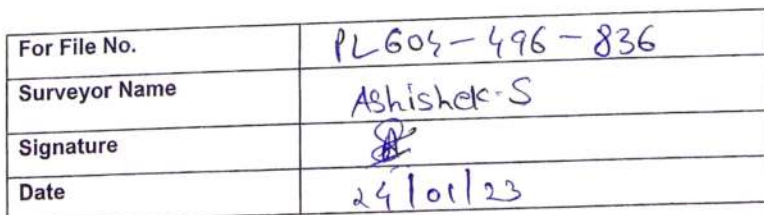 For File No. PL604-496-836
Surveyor Name Ashishek-S
Signature
Date 24/01/23